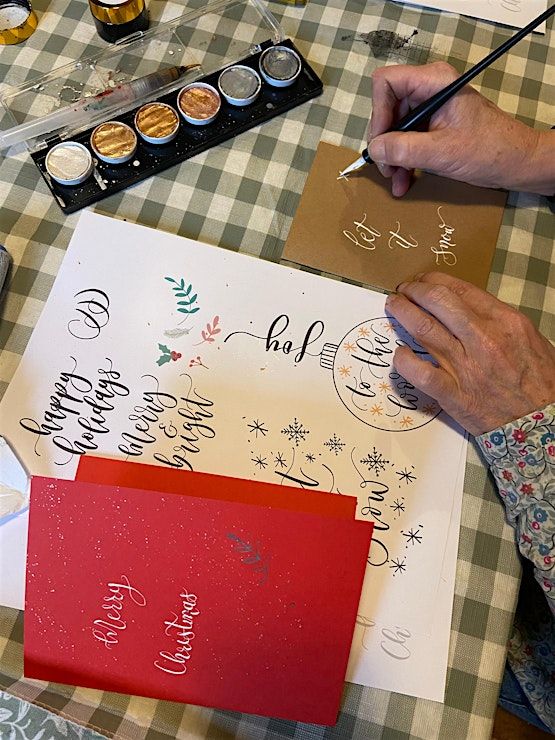 let
it
snow
Joy
to the
happy
holidays
merry
&
bright
Merry
Christmas
Ch